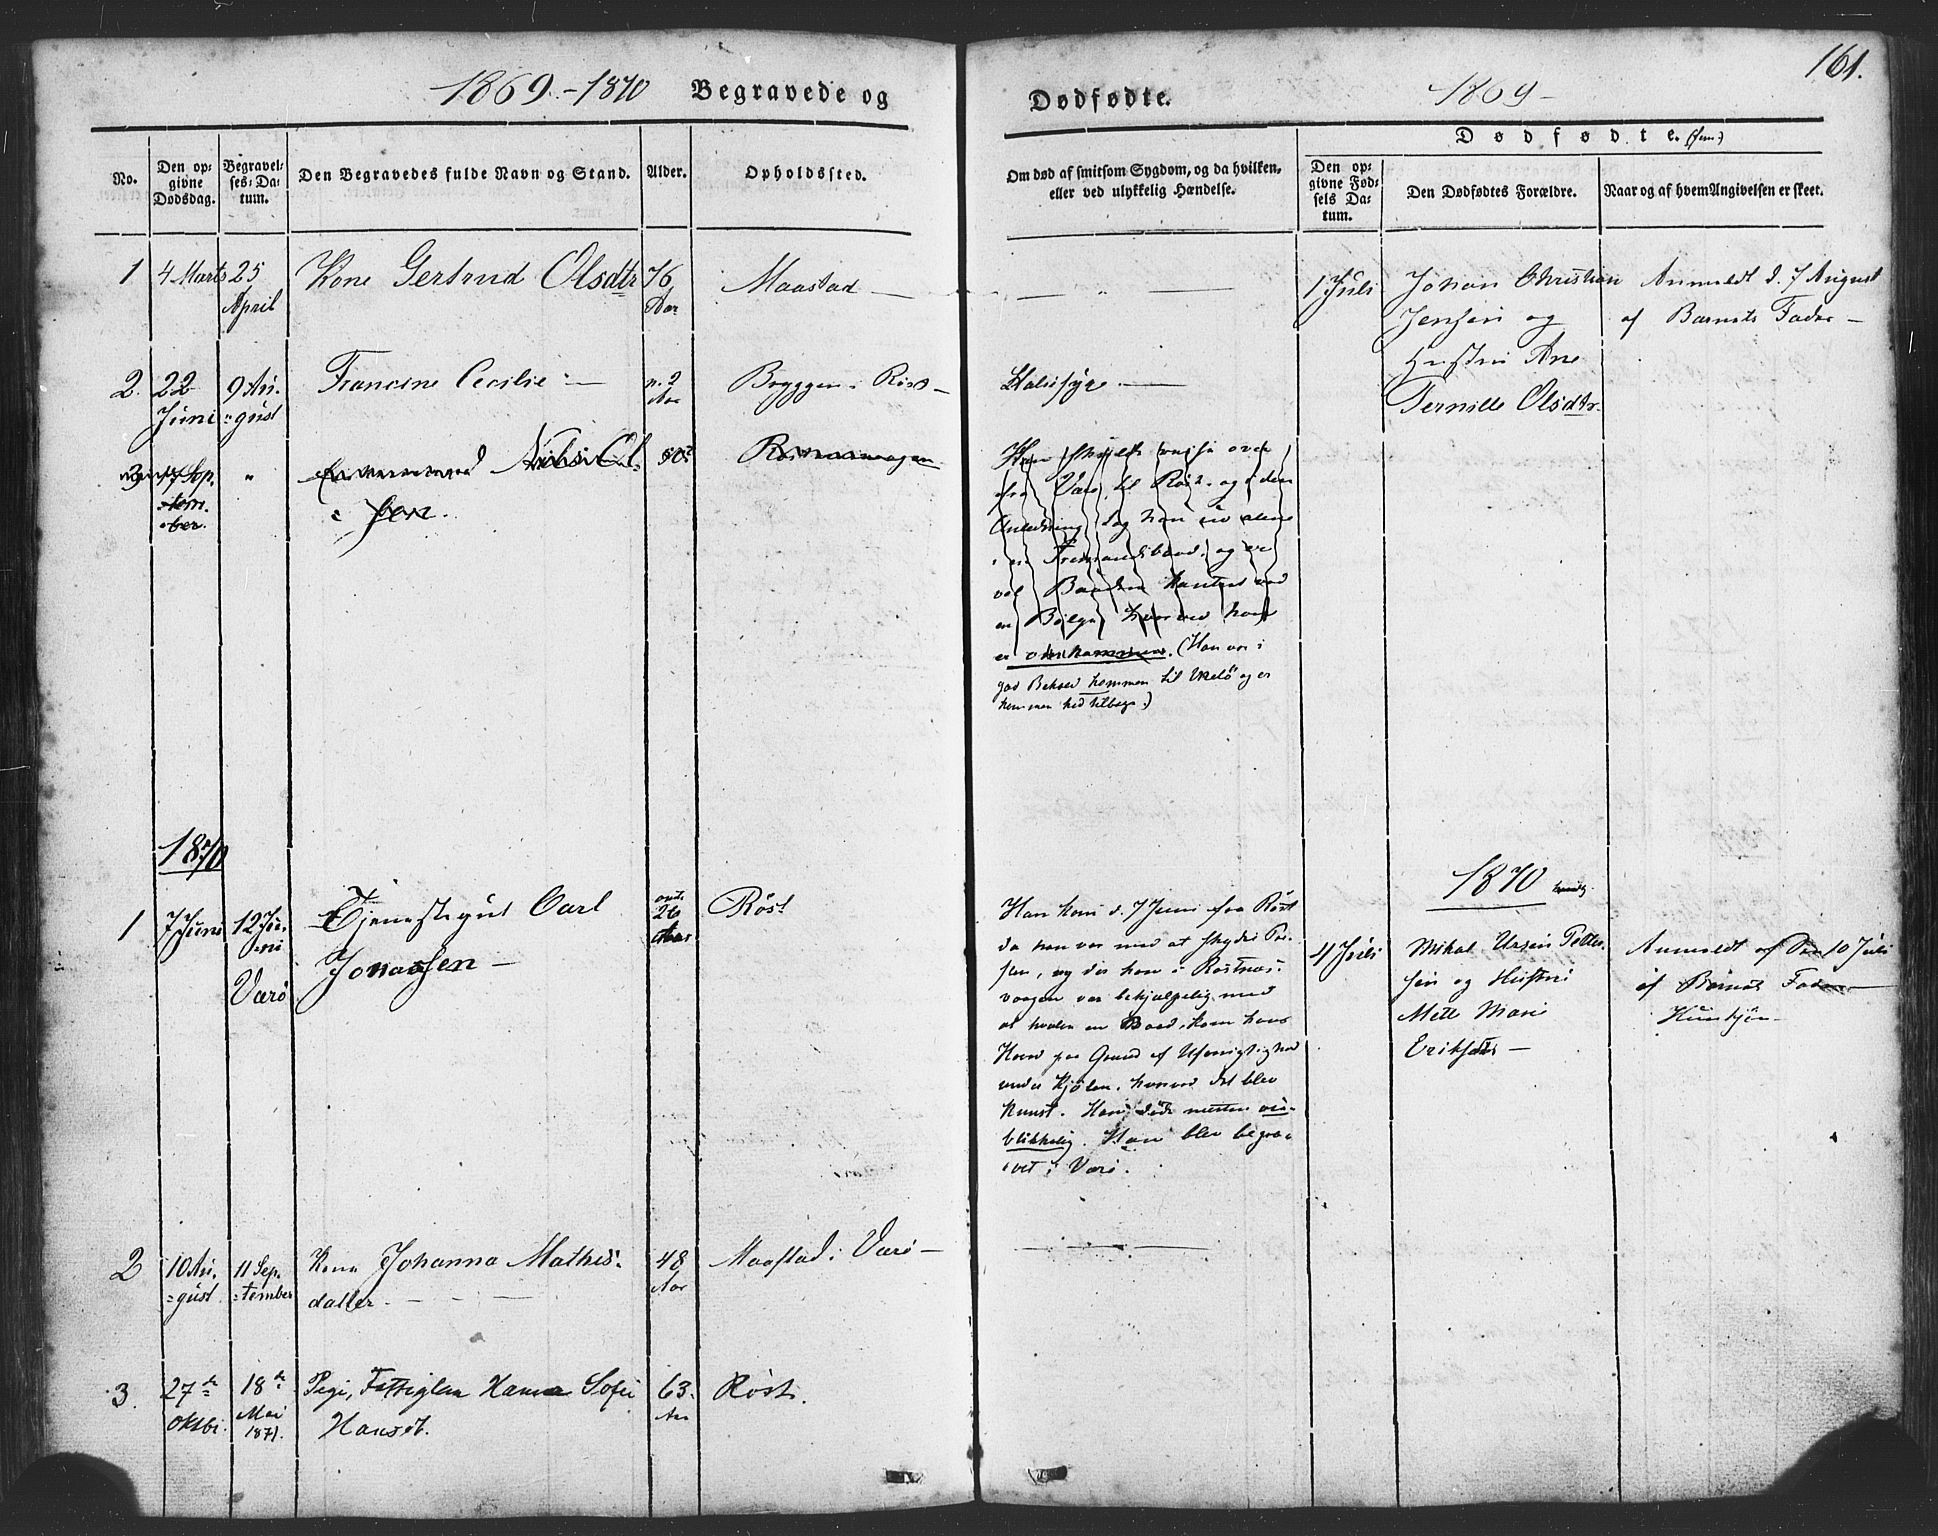 161.
1869.-1870 Begravede og
Dødfødte. 1869-
No.
Den op-
givne
Dødsdag.
Begravel-
ses-Da-
tum.
Den Begravedes fulde Navn og Stand.
Alder.
Opholdssted.
Om død af smitsom Sygdom, og da hvilken,
eller ved ulykkelig Hændelse.
Dødfødte.
Den op-
givne Fød-
sels Da-
tum.
Den Dødfødtes Forældre.
Naar og af hvem Angivelsen er skeet.
1
4 Marts
25
April
Kone Gertrud Olsdtr
76
Aar
Maastad -
1 Juli
Johan Christian
Jensen og
Hustru Ane
Pernille Olsdtr.
Anmeldt d. 7 August
af Barnets Fader -
2.
22
Juni
9 Au-
gust
Francine Cecilie -
n. 2
Aar
Bryggen i Røst -
Halssyge -
3
17 Sep-
tem-
ber.
"
Nils Ol-
sen.
50
Han skulde reise over
fra Værø til Røst og i den
Anledning lag han ud alene
i en Tremandsbaad, og er
vel Baaden kantret ved
en Bølge, hvorved han
er omkommen. (Han var i
god Behold kommen til
kommen hid tilbage.)
1870
1
7 Juni
12 Ju-
ni
Værø
Tjenestegut Carl
Jonassen -
26
Aar
Røst
Han kom d. 7 Juni fra Røst
da han var med at skyde
og der han i Røstnes-
vaagen var behjælpelig med
at hvalve en Baad, kom hans
Hoved paa Grund af Uforsigtighed
under Kjølen, hvorved det blev
knust. Han døde næsten øie-
blikkelig. Han blev begra-
vet i Værø.
1870
4 Juli
Mikal Ursin Petter-
sen og Hustru
Mette Marie
Eriksdtr -
Anmeldt af Den 10 Juli
af Barnets Fader -
2
10 Au-
gust
11 Sep-
tember
Kone Johanna Mathis-
datter -
48
Aar
Maastad i Værø -
3.
27de
Oktbr.
18de
Mai
1871.
Pige, Fattiglem Hanna Sofie
Hansdt.
63
Aar
Røst.